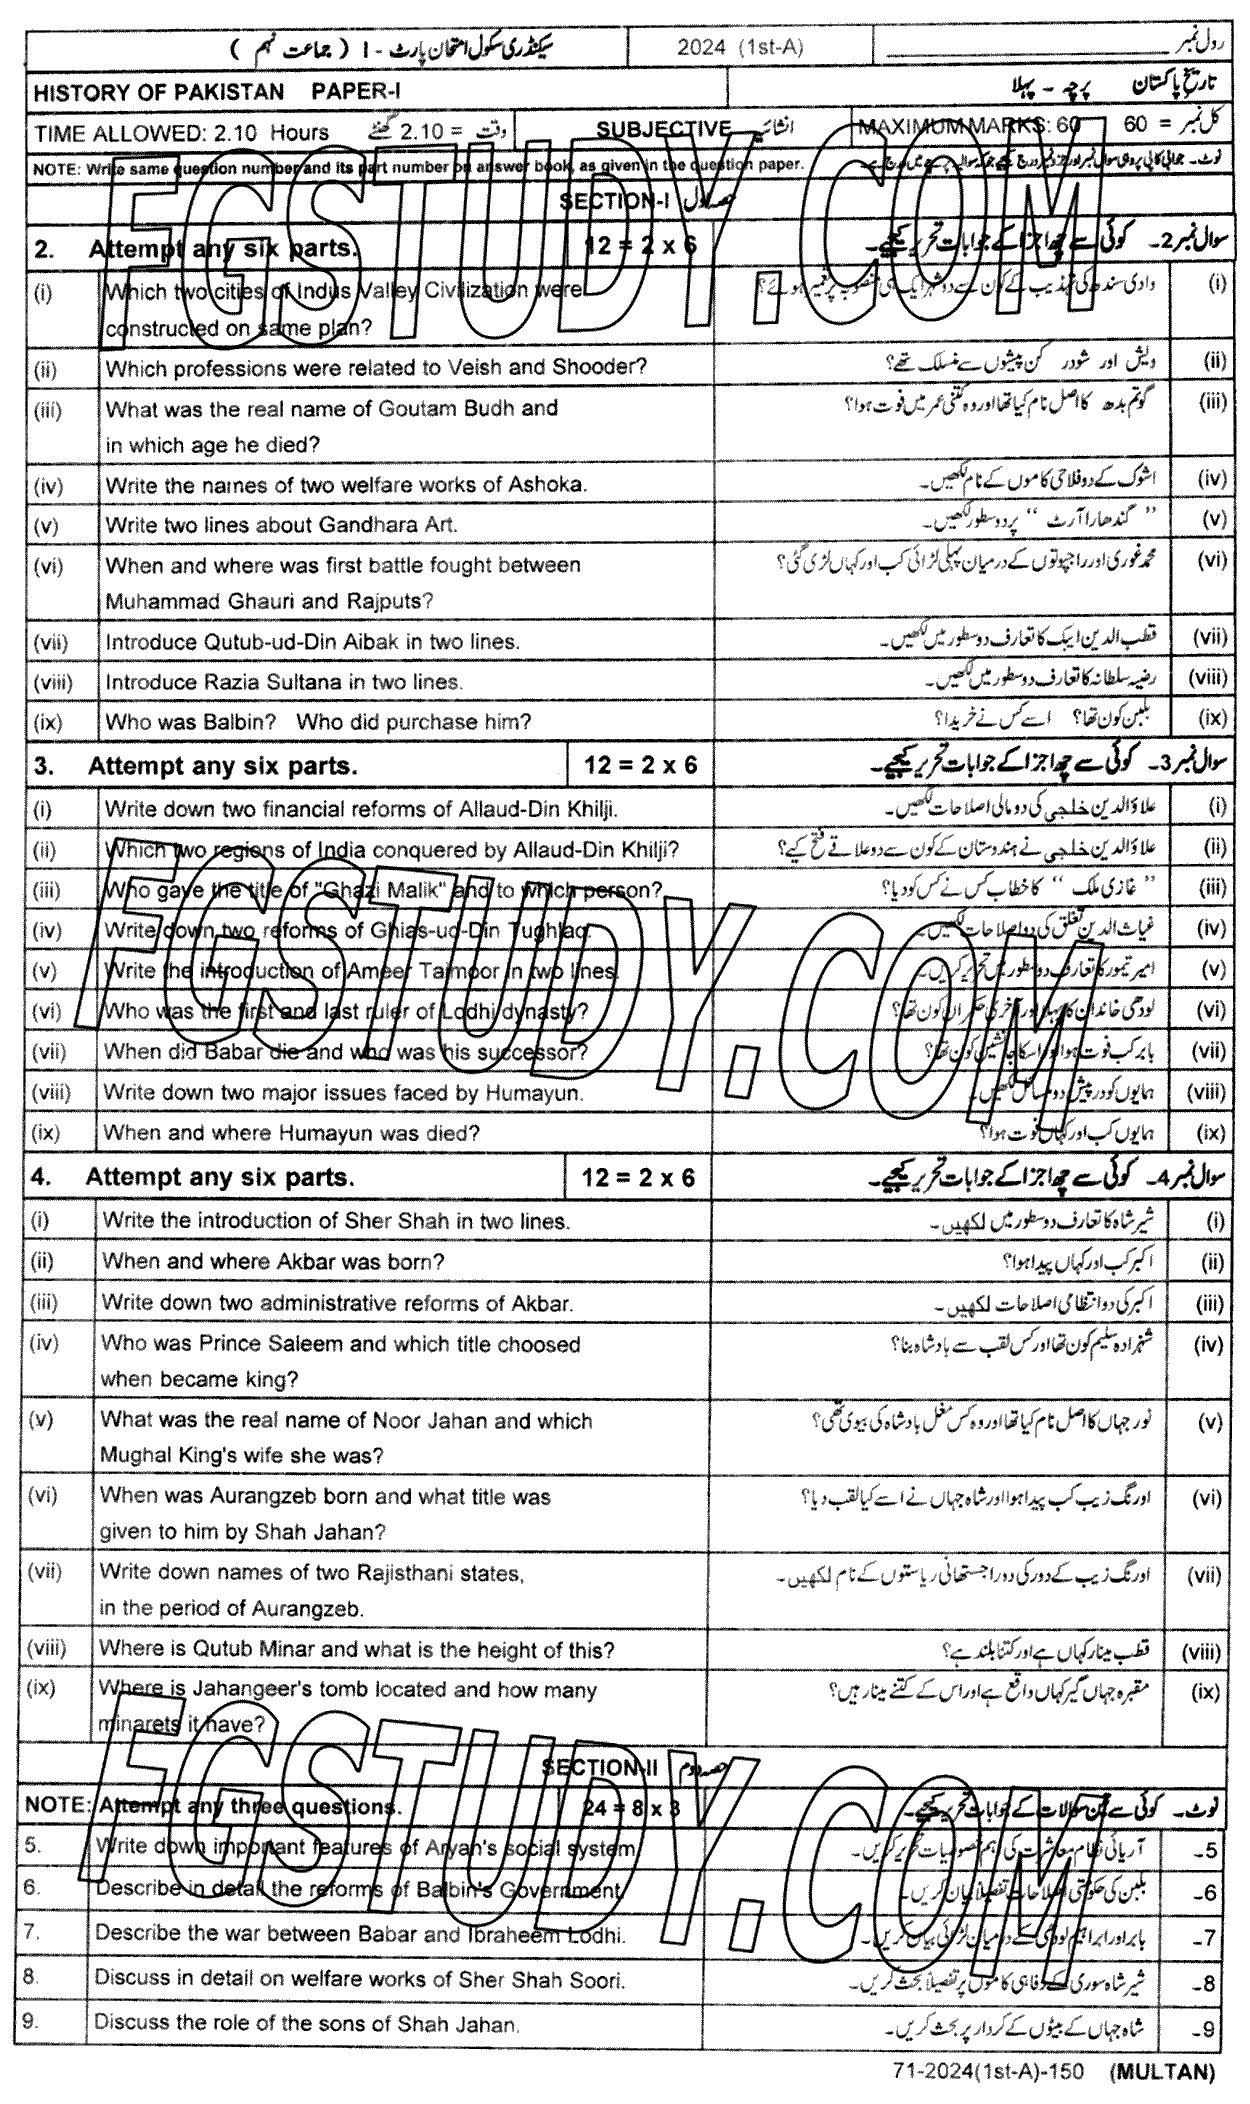 سیکنڈری سکول امتحان پارٹ - I ( جماعت نہم ) 2024 (1st-A) رول نمبر
HISTORY OF PAKISTAN PAPER-I تاریخ پاکستان پرچہ - پہلا
TIME ALLOWED: 2.10 Hours وقت = 2.10 گھنٹے SUBJECTIVE انشائیہ MAXIMUM MARKS: 60 کل نمبر = 60
NOTE: Write same question number and its part number on answer book, as given in the question paper. نوٹ۔ جوابی کاپی پر وہی سوال نمبر اور جزو نمبر درج کیجیے جو کہ سوالیہ پرچے میں درج ہے۔
SECTION-I حصہ اول
2. Attempt any six parts. 12 = 2 x 6 سوال نمبر 2۔ کوئی سے چھ اجزا کے جوابات تحریر کیجیے۔
(i) Which two cities of Indus Valley Civilization were وادی سندھ کی تہذیب کے کون سے دو شہر ایک ہی منصوبہ پر تعمیر ہوئے؟ (i)
constructed on same plan?
(ii) Which professions were related to Veish and Shooder? ویش اور شودر کن پیشوں سے منسلک تھے؟ (ii)
(iii) What was the real name of Goutam Budh and گوتم بدھ کا اصل نام کیا تھا اور وہ کتنی عمر میں فوت ہوا؟ (iii)
in which age he died?
(iv) Write the names of two welfare works of Ashoka. اشوک کے دو فلاحی کاموں کے نام لکھیں۔ (iv)
(v) Write two lines about Gandhara Art. " گندھارا آرٹ " پر دو سطور لکھیں۔ (v)
(vi) When and where was first battle fought between محمد غوری اور راجپوتوں کے درمیان پہلی لڑائی کب اور کہاں لڑی گئی؟ (vi)
Muhammad Ghauri and Rajputs?
(vii) Introduce Qutub-ud-Din Aibak in two lines. قطب الدین ایبک کا تعارف دو سطور میں لکھیں۔ (vii)
(viii) Introduce Razia Sultana in two lines. رضیہ سلطانہ کا تعارف دو سطور میں لکھیں۔ (viii)
(ix) Who was Balbin? Who did purchase him? بلبن کون تھا؟ اسے کس نے خریدا؟ (ix)
3. Attempt any six parts. 12 = 2 x 6 سوال نمبر 3۔ کوئی سے چھ اجزا کے جوابات تحریر کیجیے۔
(i) Write down two financial reforms of Allaud-Din Khilji. علاؤ الدین خلجی کی دو مالی اصلاحات لکھیں۔ (i)
(ii) Which two regions of India conquered by Allaud-Din Khilji? علاؤ الدین خلجی نے ہندوستان کے کون سے دو علاقے فتح کیے؟ (ii)
(iii) Who gave the title of "Ghazi Malik" and to which person? " غازی ملک " کا خطاب کس نے کس کو دیا؟ (iii)
(iv) Write down two reforms of Ghias-ud-Din Tughlaq. غیاث الدین تغلق کی دو اصلاحات لکھیں۔ (iv)
(v) Write the introduction of Ameer Taimoor in two lines. امیر تیمور کا تعارف دو سطور میں تحریر کریں۔ (v)
(vi) Who was the first and last ruler of Lodhi dynasty? لودھی خاندان کا پہلا اور آخری حکمران کون تھا؟ (vi)
(vii) When did Babar die and who was his successor? بابر کب فوت ہوا اور اسکا جانشین کون تھا؟ (vii)
(viii) Write down two major issues faced by Humayun. ہمایوں کو درپیش دو مسائل لکھیں۔ (viii)
(ix) When and where Humayun was died? ہمایوں کب اور کہاں فوت ہوا؟ (ix)
4. Attempt any six parts. 12 = 2 x 6 سوال نمبر 4۔ کوئی سے چھ اجزا کے جوابات تحریر کیجیے۔
(i) Write the introduction of Sher Shah in two lines. شیر شاہ کا تعارف دو سطور میں لکھیں۔ (i)
(ii) When and where Akbar was born? اکبر کب اور کہاں پیدا ہوا؟ (ii)
(iii) Write down two administrative reforms of Akbar. اکبر کی دو انتظامی اصلاحات لکھیں۔ (iii)
(iv) Who was Prince Saleem and which title choosed شہزادہ سلیم کون تھا اور کس لقب سے بادشاہ بنا؟ (iv)
when became king?
(v) What was the real name of Noor Jahan and which نور جہاں کا اصل نام کیا تھا اور وہ کس مغل بادشاہ کی بیوی تھی؟ (v)
Mughal King's wife she was?
(vi) When was Aurangzeb born and what title was اورنگ زیب کب پیدا ہوا اور شاہ جہاں نے اسے کیا لقب دیا؟ (vi)
given to him by Shah Jahan?
(vii) Write down names of two Rajisthani states, اورنگ زیب کے دور کی دو راجستھانی ریاستوں کے نام لکھیں۔ (vii)
in the period of Aurangzeb.
(viii) Where is Qutub Minar and what is the height of this? قطب مینار کہاں ہے اور کتنا بلند ہے؟ (viii)
(ix) Where is Jahangeer's tomb located and how many مقبرہ جہاں گیر کہاں واقع ہے اور اس کے کتنے مینار ہیں؟ (ix)
minarets it have?
SECTION-II حصہ دوم
NOTE: Attempt any three questions. 24 = 8 x 3 نوٹ۔ کوئی سے تین سوالات کے جوابات تحریر کیجیے۔
5. Write down important features of Aryan's social system. آریائی نظام معاشرت کی اہم خصوصیات تحریر کریں۔ 5۔
6. Describe in detail the reforms of Balbin's Government. بلبن کی حکومتی اصلاحات تفصیلاً بیان کریں۔ 6۔
7. Describe the war between Babar and Ibraheem Lodhi. بابر اور ابراہیم لودھی کے درمیان لڑائی بیان کریں۔ 7۔
8. Discuss in detail on welfare works of Sher Shah Soori. شیر شاہ سوری کے رفاہی کاموں پر تفصیلاً بحث کریں۔ 8۔
9. Discuss the role of the sons of Shah Jahan. شاہ جہاں کے بیٹوں کے کردار پر بحث کریں۔ 9۔
71-2024(1st-A)-150 (MULTAN)
FGSTUDY.COM
FGSTUDY.COM
FGSTUDY.COM